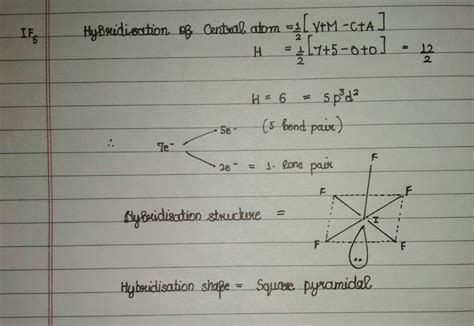 IF5 Hybridisation of Central atom = 1/2 [V+M-C+A]
H = 1/2 [7+5-0+0] = 12/2
H = 6 = sp³d²
∴ 7e⁻ 5e⁻ (5 bond pair)
2e⁻ = 1 lone pair
F
F F
Hybridisation structure = I
F F
Hybridisation shape = Square pyramidal